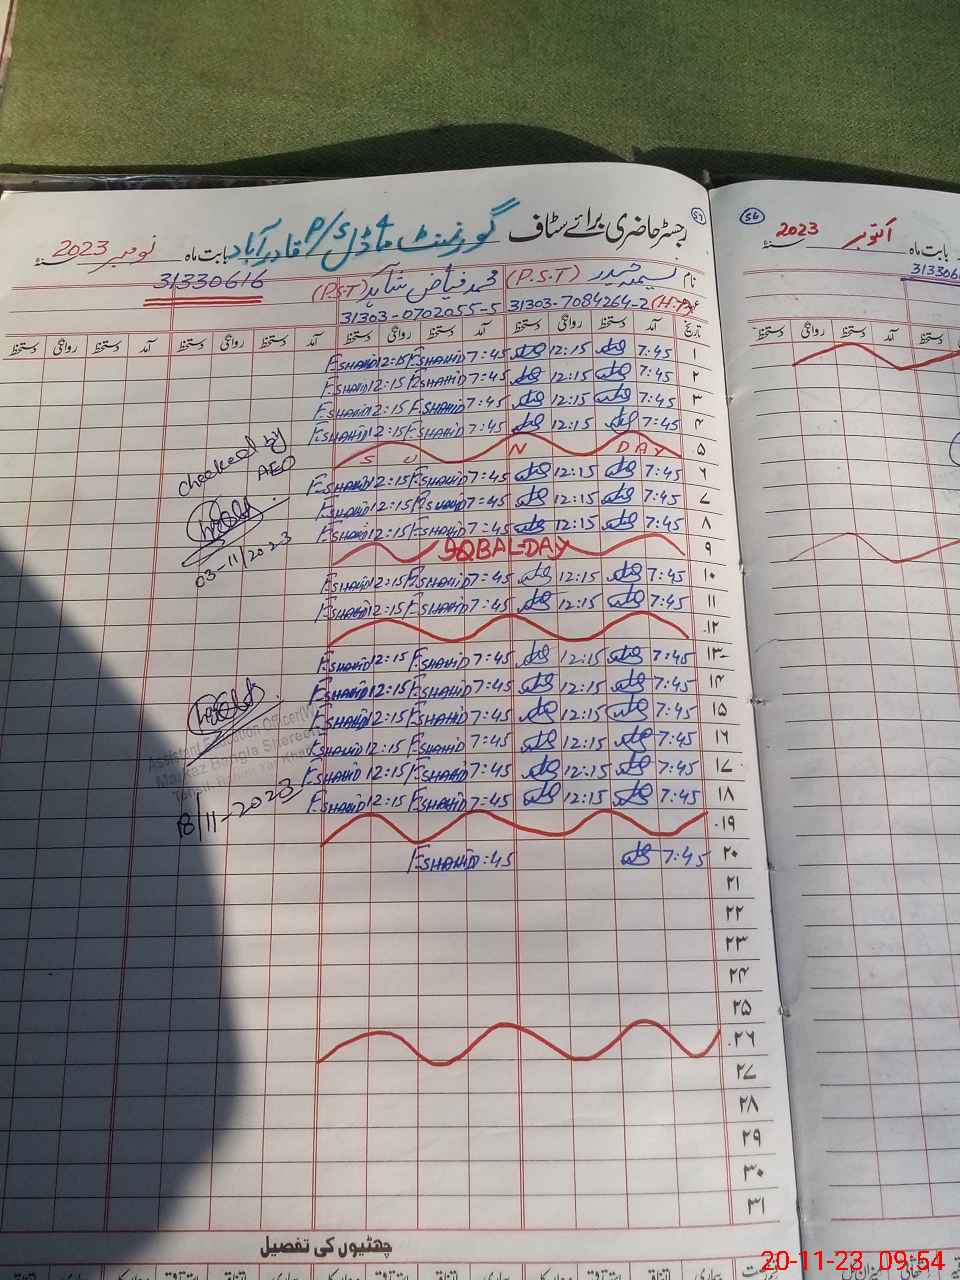 رجسٹر حاضری برائے سٹاف گورنمنٹ ماڈل P/S قادر آباد بابت ماہ نومبر 2023 سنہ
57
نام نسیمہ حیدر (P.S.T) محمد فیاض شاہد (P.S.T) 31330616
31303-7084264-2 (H.T) 31303-0702055-5
تاریخ آمد دستخط روانگی دستخط آمد دستخط روانگی دستخط آمد دستخط روانگی دستخط آمد دستخط روانگی دستخط
۱ 7:45 12:15 7:45 F.SHAHID 12:15 F.SHAHID
۲ 7:45 12:15 7:45 F.SHAHID 12:15 F.SHAHID
۳ 7:45 12:15 7:45 F.SHAHID 12:15 F.SHAHID
۴ 7:45 12:15 7:45 F.SHAHID 12:15 F.SHAHID
۵ S U N DAY
۶ 7:45 12:15 7:45 F.SHAHID 12:15 F.SHAHID
۷ 7:45 12:15 7:45 F.SHAHID 12:15 F.SHAHID
۸ 7:45 12:15 7:45 F.SHAHID 12:15 F.SHAHID
۹ IQBAL-DAY
۱۰ 7:45 12:15 7:45 F.SHAHID 12:15 F.SHAHID
۱۱ 7:45 12:15 7:45 F.SHAHID 12:15 F.SHAHID
۱۲
۱۳ 7:45 12:15 7:45 F.SHAHID 12:15 F.SHAHID
۱۴ 7:45 12:15 7:45 F.SHAHID 12:15 F.SHAHID
۱۵ 7:45 12:15 7:45 F.SHAHID 12:15 F.SHAHID
۱۶ 7:45 12:15 7:45 F.SHAHID 12:15 F.SHAHID
۱۷ 7:45 12:15 7:45 F.SHAHID 12:15 F.SHAHID
۱۸ 7:45 12:15 7:45 F.SHAHID 12:15 F.SHAHID
۱۹
۲۰ 7:45 :45 F.SHAHID
۲۱
۲۲
۲۳
۲۴
۲۵
۲۶
۲۷
۲۸
۲۹
۳۰
۳۱
checked by
AEO
03-11/2023
Assistant Education Officer
Markaz Bangla
18/11-2023
چھٹیوں کی تفصیل
56
بابت ماہ اکتوبر 2023 سنہ
آمد دستخط روانگی دستخط
20-11-23 09:54